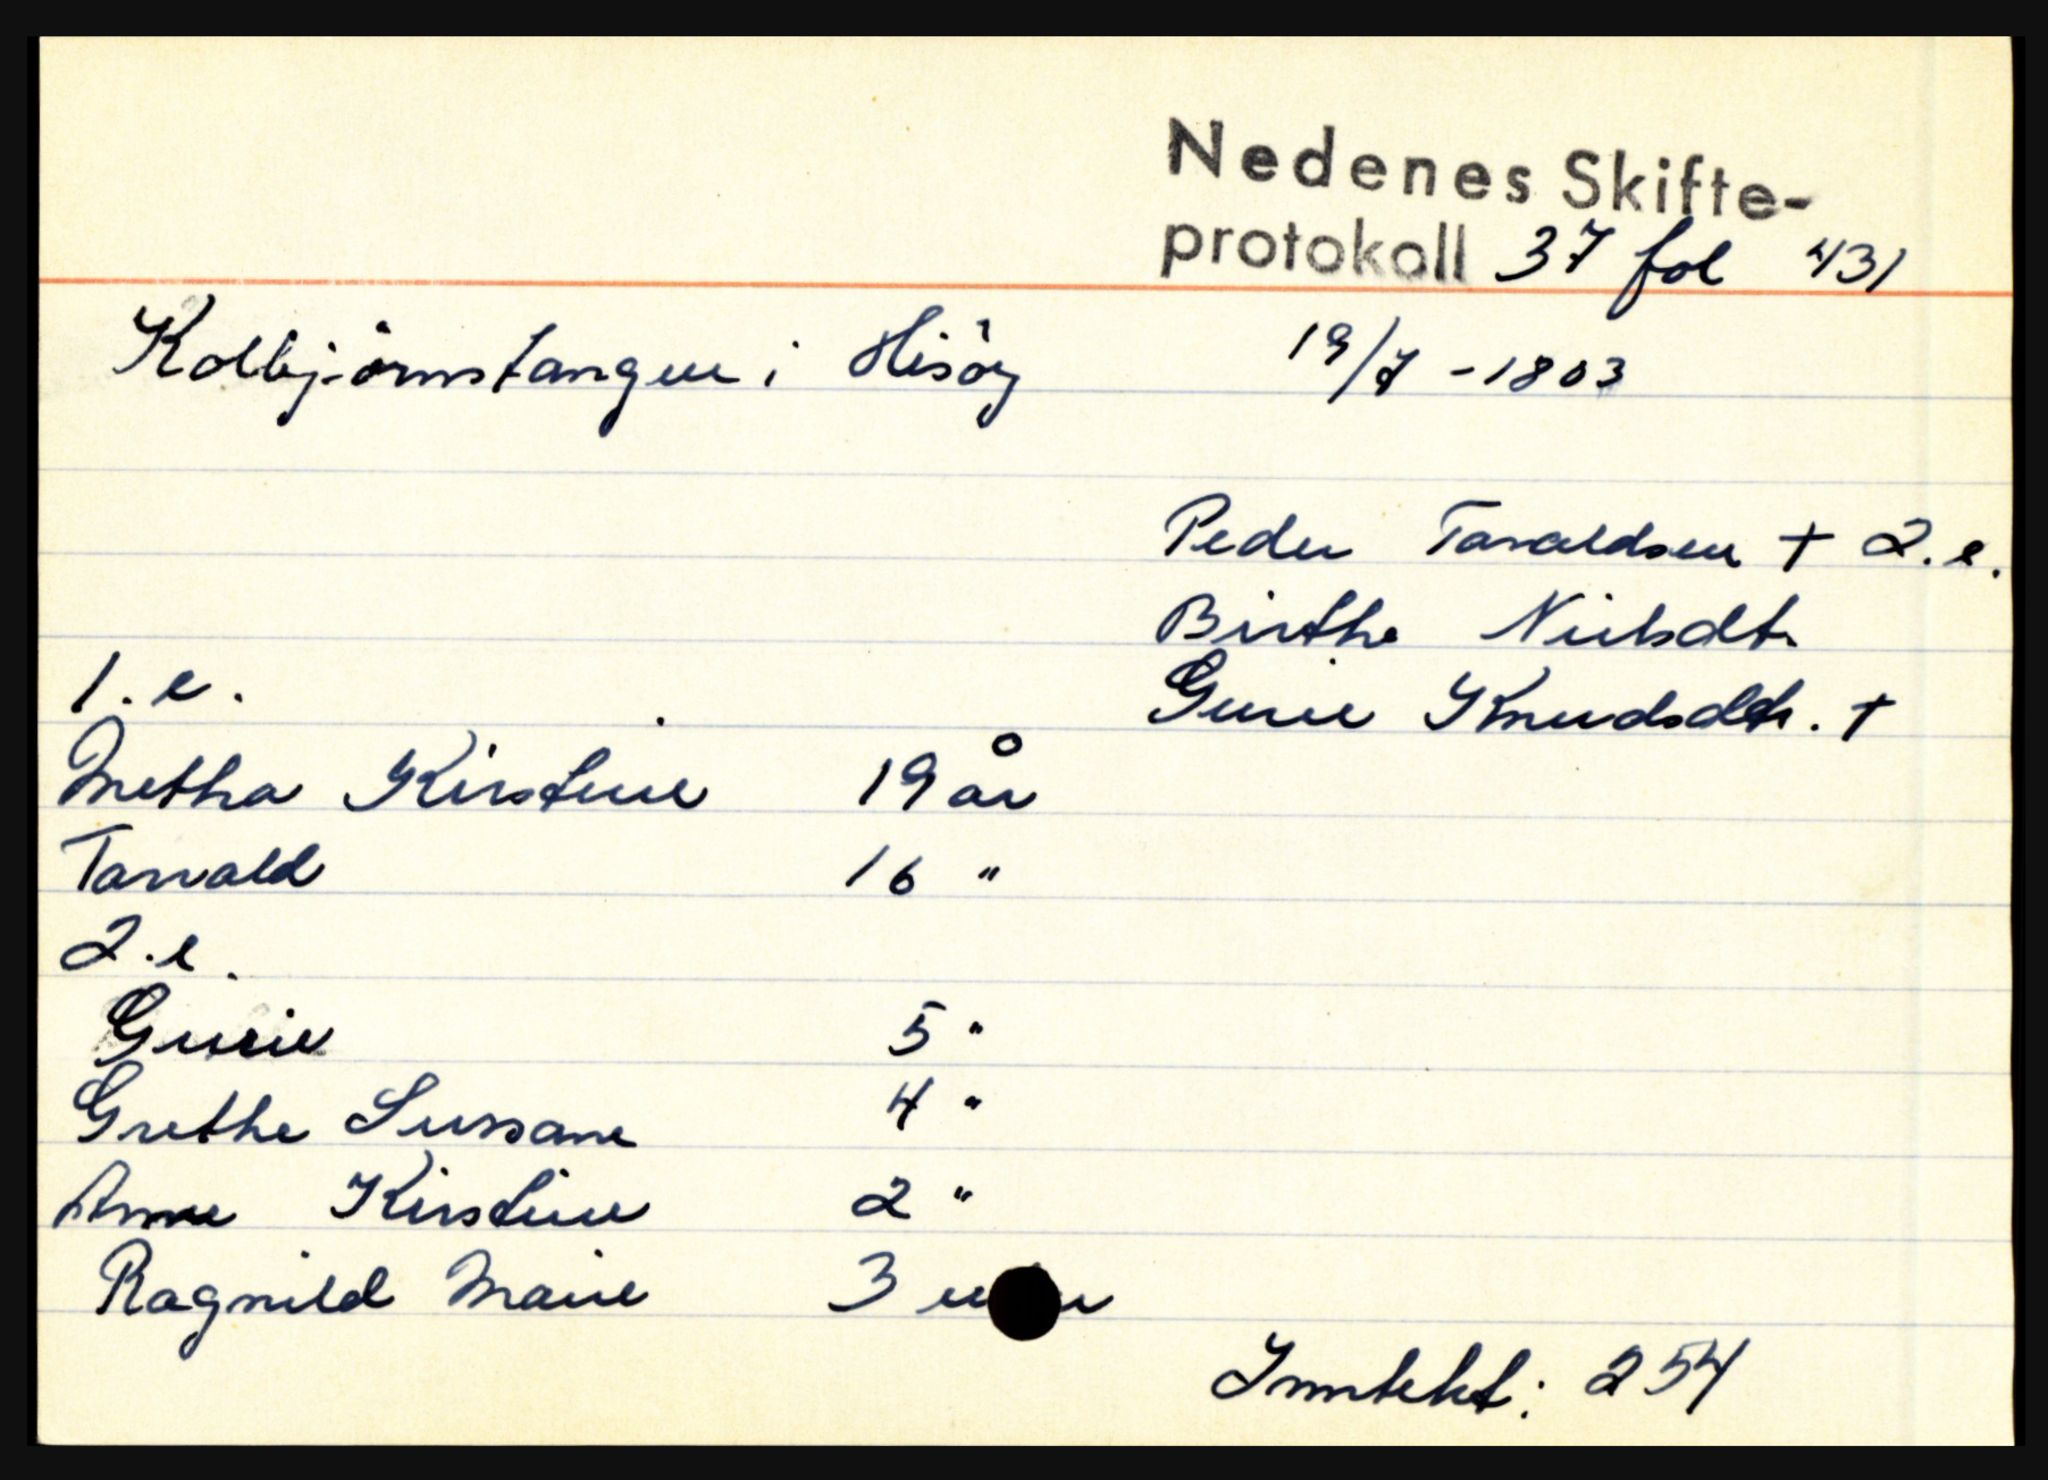 Nedenes Skifte-
protokoll 37 fol 431
Kolbjörnstangen i Hisöy 19/7 - 1803
Peder Tarvaldsen + 2.e.
Birthe Nielsdtr
1.e. Gurie Knudsdtr. +
Metha Kirstine 19 år
Tarvald 16 "
2.e.
Gurie 5 "
Grethe Sussane 4 "
Anne Kirstine 2 "
Ragnild Marie 3
Inntekt: 254